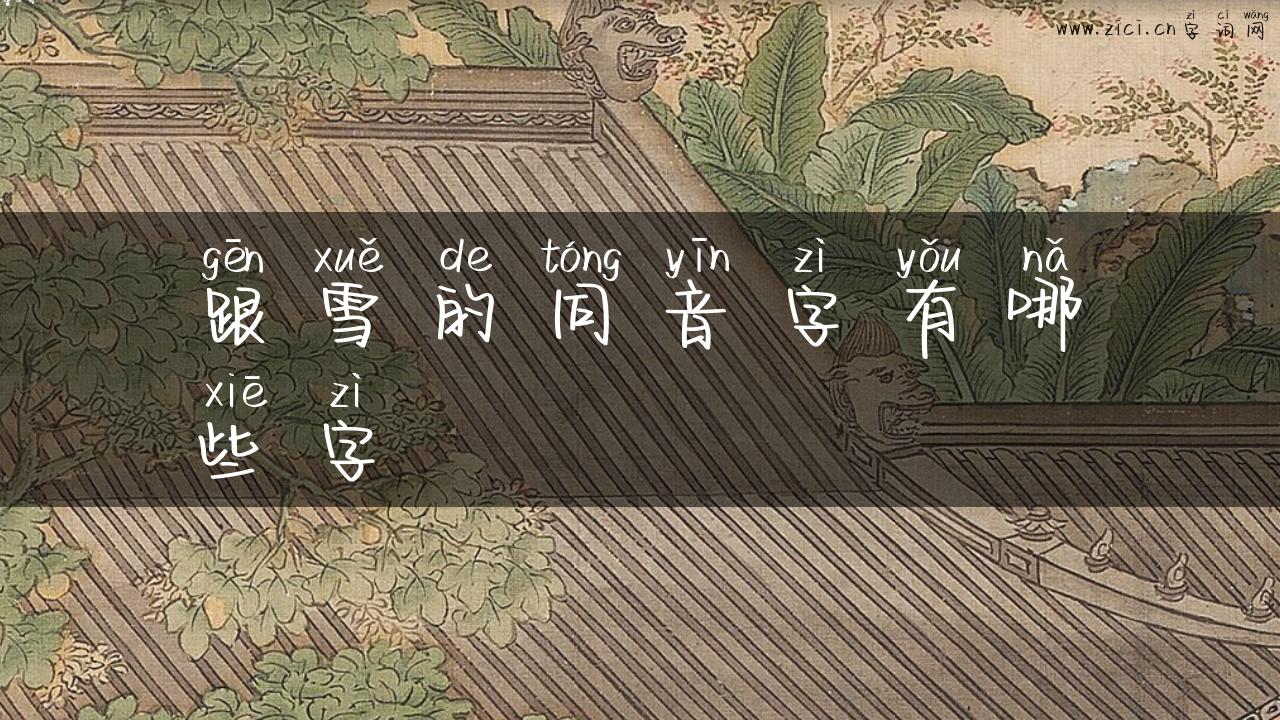 zì cí wǎng
www.zici.cn 字词网
gēn xuě de tóng yīn zì yǒu nǎ
跟雪的同音字有哪
xiē zì
些字